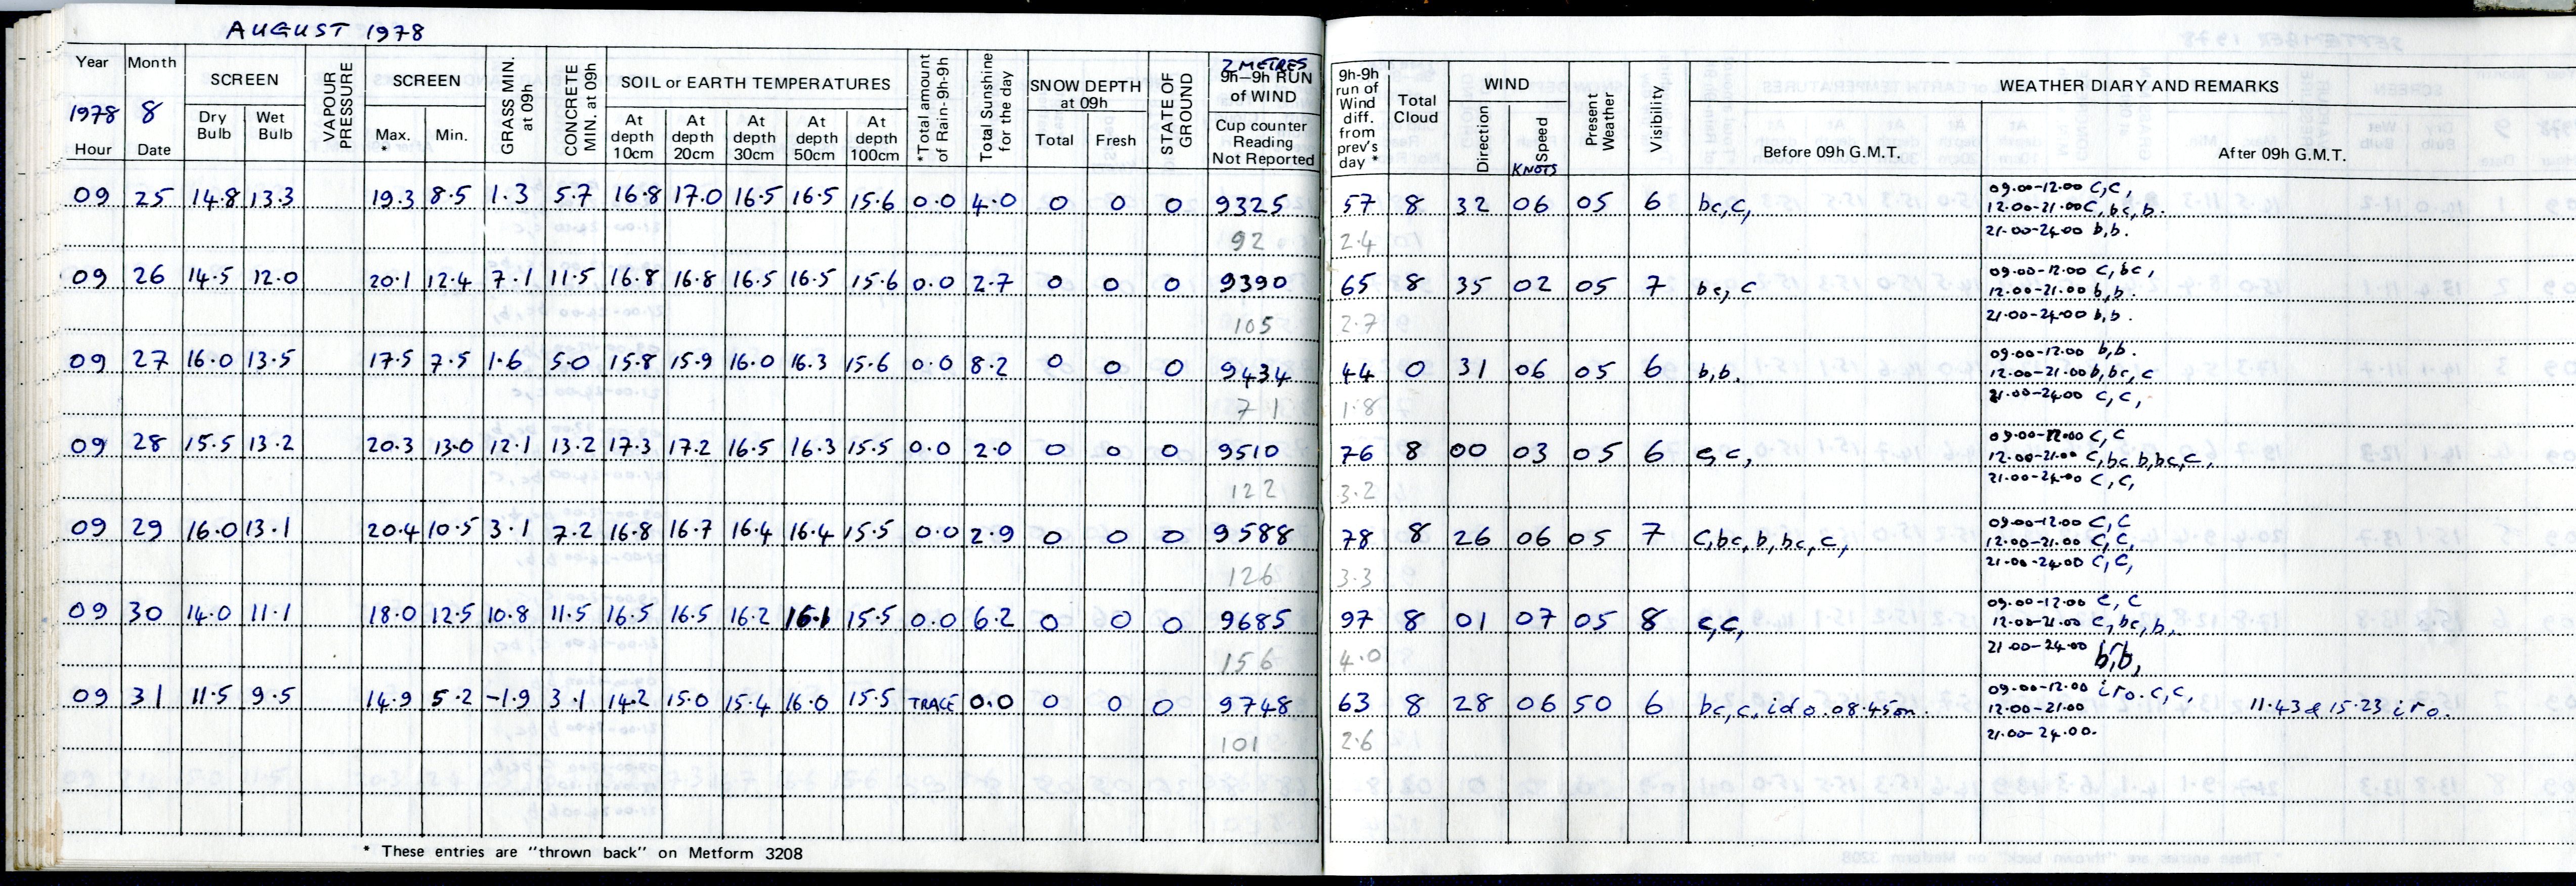 AUGUST 1978
Year Month SCREEN VAPOUR PRESSURE SCREEN GRASS MIN. at 09h CONCRETE MIN. at 09h SOIL or EARTH TEMPERATURES *Total amount of Rain-9h-9h Total Sunshine for the day SNOW DEPTH at 09h STATE OF GROUND 2 METRES 9h-9h RUN of WIND 9h-9h run of Wind diff. from prev's day * Total Cloud WIND Present Weather Visibility WEATHER DIARY AND REMARKS
1978 8 Dry Bulb Wet Bulb Max. * Min. At depth 10cm At depth 20cm At depth 30cm At depth 50cm At depth 100cm Total Fresh Cup counter Reading Not Reported Direction Speed KNOTS Before 09h G.M.T. After 09h G.M.T.
Hour Date
09 25 14.8 13.3 19.3 8.5 1.3 5.7 16.8 17.0 16.5 16.5 15.6 0.0 4.0 0 0 0 9325 57 8 32 06 05 6 bc,c, 09.00-12.00 c,c,
12.00-21.00 c,bc,b.
92 2.4 21.00-24.00 b,b.
09 26 14.5 12.0 20.1 12.4 7.1 11.5 16.8 16.8 16.5 16.5 15.6 0.0 2.7 0 0 0 9390 65 8 35 02 05 7 bc,c 09.00-12.00 c,bc,
12.00-21.00 b,b.
105 2.7 21.00-24.00 b,b.
09 27 16.0 13.5 17.5 7.5 1.6 5.0 15.8 15.9 16.0 16.3 15.6 0.0 8.2 0 0 0 9434 44 0 31 06 05 6 b,b. 09.00-12.00 b,b.
12.00-21.00 b,bc,c
71 1.8 21.00-24.00 c,c,
09 28 15.5 13.2 20.3 13.0 12.1 13.2 17.3 17.2 16.5 16.3 15.5 0.0 2.0 0 0 0 9510 76 8 00 03 05 6 c,c, 09.00-12.00 c,c
12.00-21.00 c,bc,b,bc,c,
122 3.2 21.00-24.00 c,c,
09 29 16.0 13.1 20.4 10.5 3.1 7.2 16.8 16.7 16.4 16.4 15.5 0.0 2.9 0 0 0 9588 78 8 26 06 05 7 c,bc,b,bc,c, 09.00-12.00 c,c
12.00-21.00 c,c,
126 3.3 21.00-24.00 c,c,
09 30 14.0 11.1 18.0 12.5 10.8 11.5 16.5 16.5 16.2 16.1 15.5 0.0 6.2 0 0 0 9685 97 8 01 07 05 8 c,c, 09.00-12.00 c,c
12.00-21.00 c,bc,b,
156 4.0 21.00-24.00 b,b,
09 31 11.5 9.5 14.9 5.2 -1.9 3.1 14.2 15.0 15.4 16.0 15.5 TRACE 0.0 0 0 0 9748 63 8 28 06 50 6 bc,c,ido.08.45on. 09.00-12.00 iro.c,c,
12.00-21.00 11.43 & 15.23 iro.
101 2.6 21.00-24.00.
* These entries are "thrown back" on Metform 3208